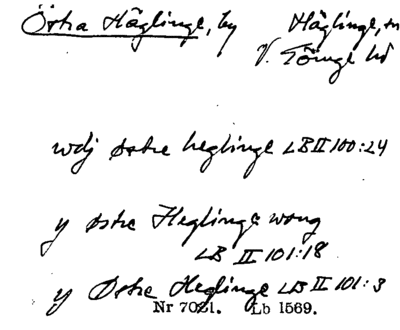 Östra Häglinge, by Häglinge, sn
V. Göinge hd
wdj østre heglinge LB II 100:24
y østre Heglinge wong
LB II 101:18
y Østre Heglinge LB II 101:3
Nr 7021. Lb 1569.